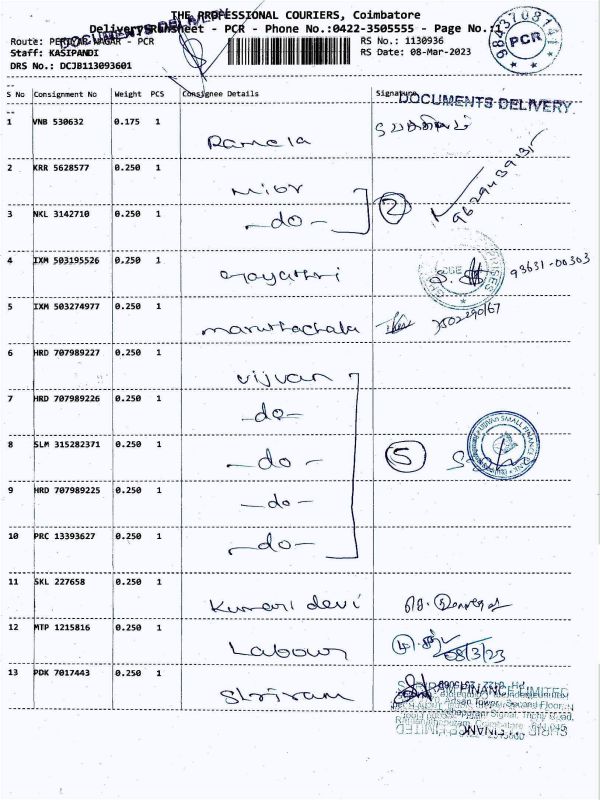 THE PROFESSIONAL COURIERS, Coimbatore
Delivery Runsheet - PCR - Phone No.:0422-3505555 - Page No.:
DOCUMENTS DELIVERY
Route: PERIYAR NAGAR - PCR RS No.: 1130936
Staff: KASIPANDI RS Date: 08-Mar-2023
DRS No.: DCJB113093601
PCR
S No Consignment No Weight PCS Consignee Details Signature
DOCUMENTS DELIVERY
1 VNB 530632 0.175 1 Ramela
2 KRR 5628577 0.250 1
3 NKL 3142710 0.250 1 -do- 2
4 IXM 503195526 0.250 1 Gayathri 93631-00303
5 IXM 503274977 0.250 1 maruthachala
6 HRD 707989227 0.250 1 Ujjivan
7 HRD 707989226 0.250 1 -do-
8 SLM 315282371 0.250 1 -do- 5
UJJIVAN SMALL FINANCE BANK
9 HRD 707989225 0.250 1 -do-
10 PRC 13393627 0.250 1 -do-
11 SKL 227658 0.250 1 Kumari devi
12 MTP 1215816 0.250 1 Labour 08/3/23
13 PDK 7017443 0.250 1 Shriram
FINANCE LIMITED